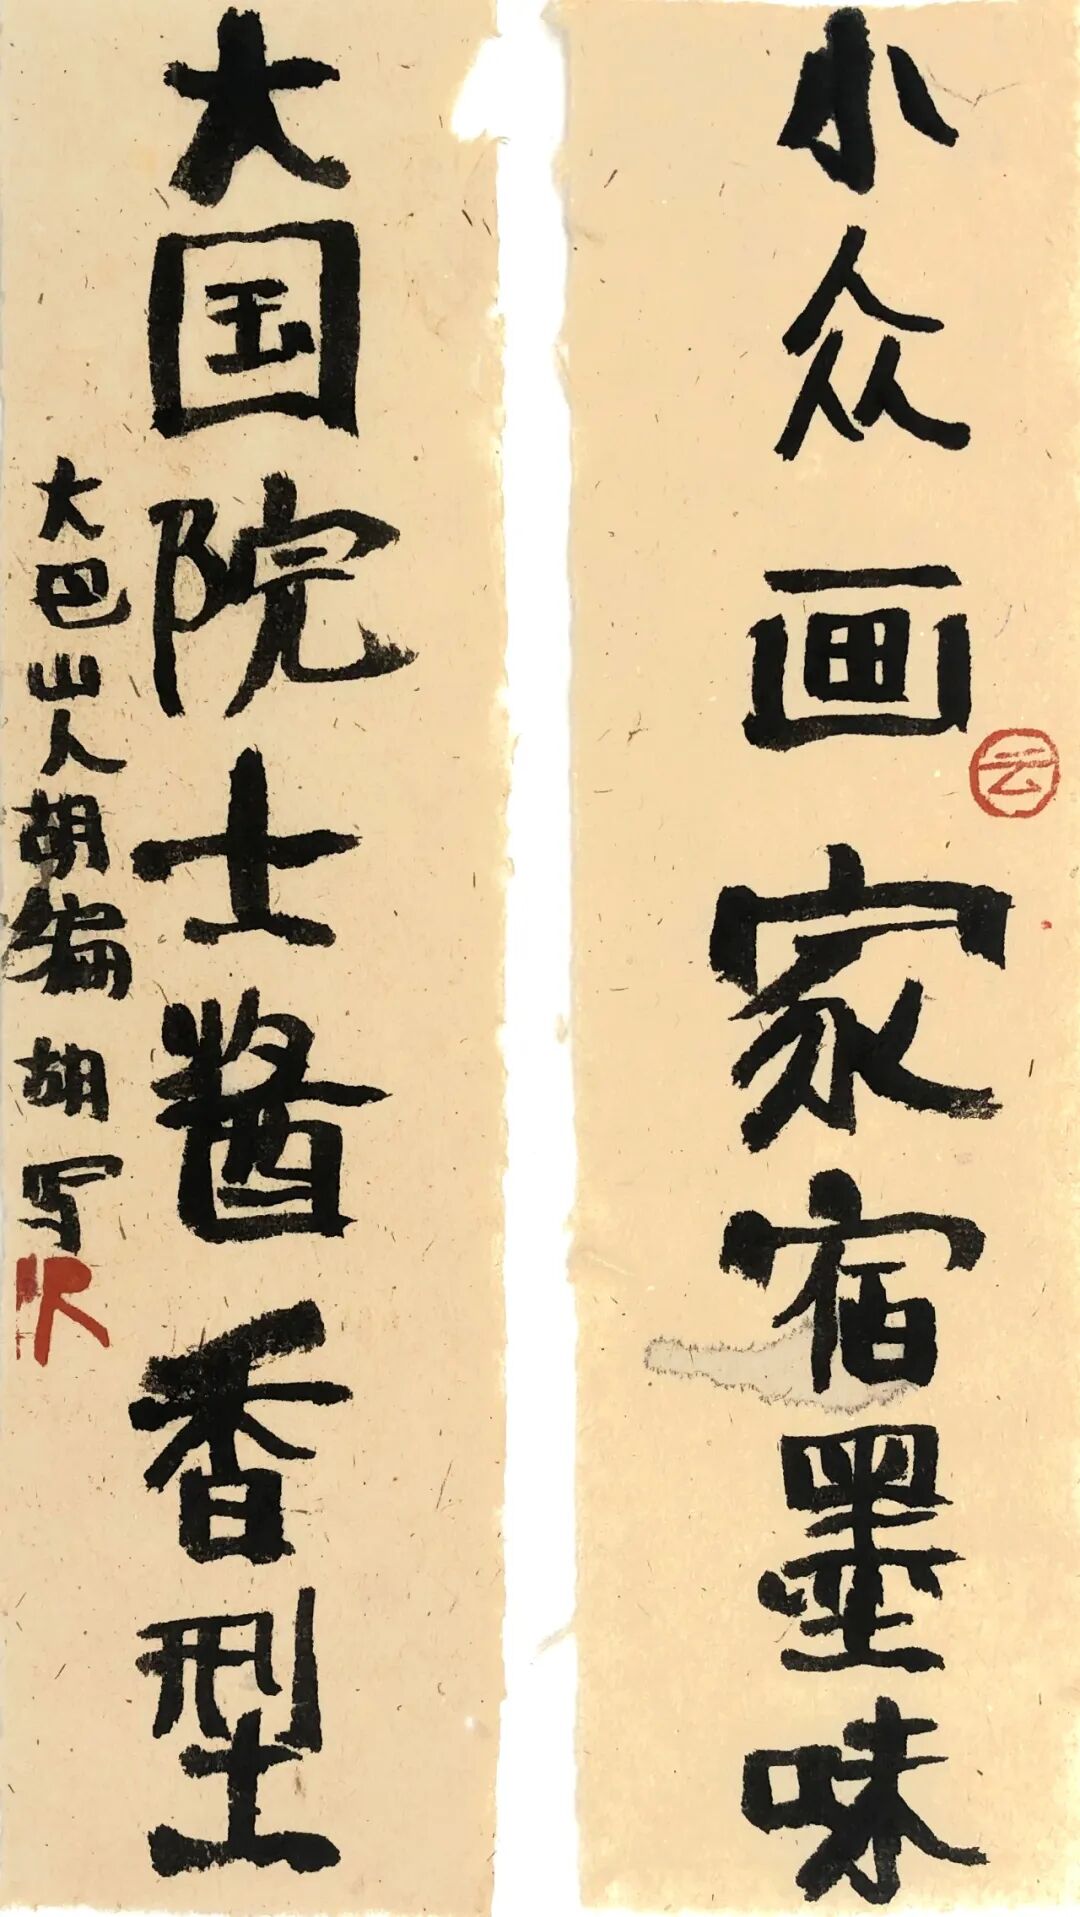 小众画家宿墨味
云
大国院士酱香型
大巴山人胡编胡写